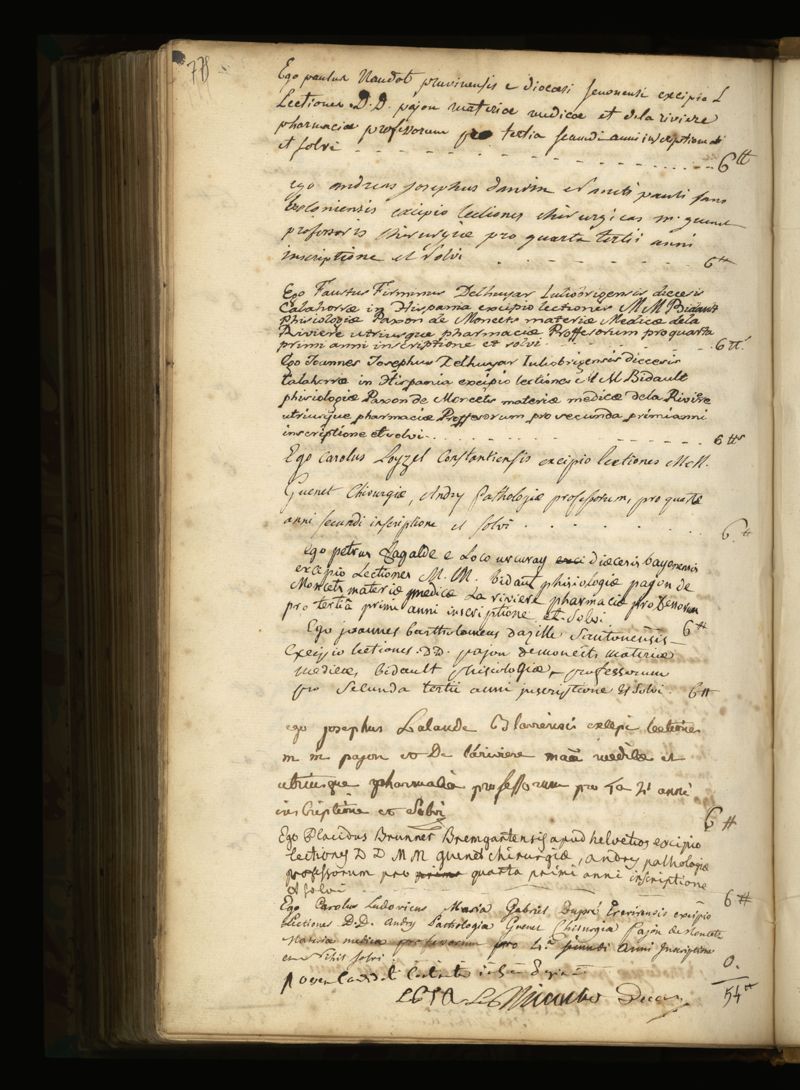 Ego paulus Naudot pruvinensis e diocesi senonensi excipio
Lectiones D.D. pajon materiæ medicæ et de la riviere
pharmaciæ professorum pro tertia secundi anni inscriptione
et solvi 6tt
ego andreas josephus pauli
excipio lectiones chirurgicas m. guenet
professoris chirurgiæ pro quarta tertii anni
inscriptione et solvi 6tt
Ego Faustus Firminus Delhuyar Luliobrigensis diecesis
Calahorræ in Hispania excipio lectiones M M Bidault
phisiologiæ Paxon de Moncets materiæ Medicæ dela
Riviere utriusque pharmaciæ Proffesorum pro quarta
primi anni inscriptione et solvi 6tt
Ego Joannes Josephus Delhuyar Iuliobrigensis diecesis
Calahorræ in Hispania excipio lectiones M M Bidault
phisiologiæ Paxon de Moncets materiæ medicæ de la Riviere
utriusque pharmaciæ Proffesorum pro secunda primi anni
inscriptione et solvi 6tt
Ego Carolus Loyzel Constantiensis excipio lectiones M.M.
Guenet Chirurgiæ, Andry Pathologiæ professorum, pro quarta
anni secundi inscriptione et solvi 6tt
ego petrus Lagalde e Loco urcuray diæcesis bayonensis
excipio Lectiones M. M. bidault phisiologiæ pajon de
Moncets materiæ medicæ La riviere pharmaciæ professorum
pro tertiâ primi anni inscriptione et solvi 6tt
Ego joannes bartholomeus dazille Santonensis
Excipio lectiones DD. pajon demoncets materiæ
medicæ, bidault phisiologiæ professorum
pro secunda tertii anni inscriptione et solvi 6tt
ego josephus Lalande excepi lectiones
m m pajon et De lariviere medicæ et
utriusque pharmaciæ professorum pro anni
inscriptione et solvi 6tt
Ego Placidus Brunner Bremgartensis apud helvetios excipio
lectiones D D M M guenet chirurgiæ, andry pathologiæ
professorum pro quarta primi anni inscriptione
et solvi 6tt
Ego Carolus Ludovicus Maria Gabriel Dupré Trevirensis excipio
Lectiones D.D. Andry Pathologia Guenet Chirurgia Pajon de Moncets
materia medica professorum pro 4a secundi anni Inscriptione
et Nihil solvi 0.
54tt